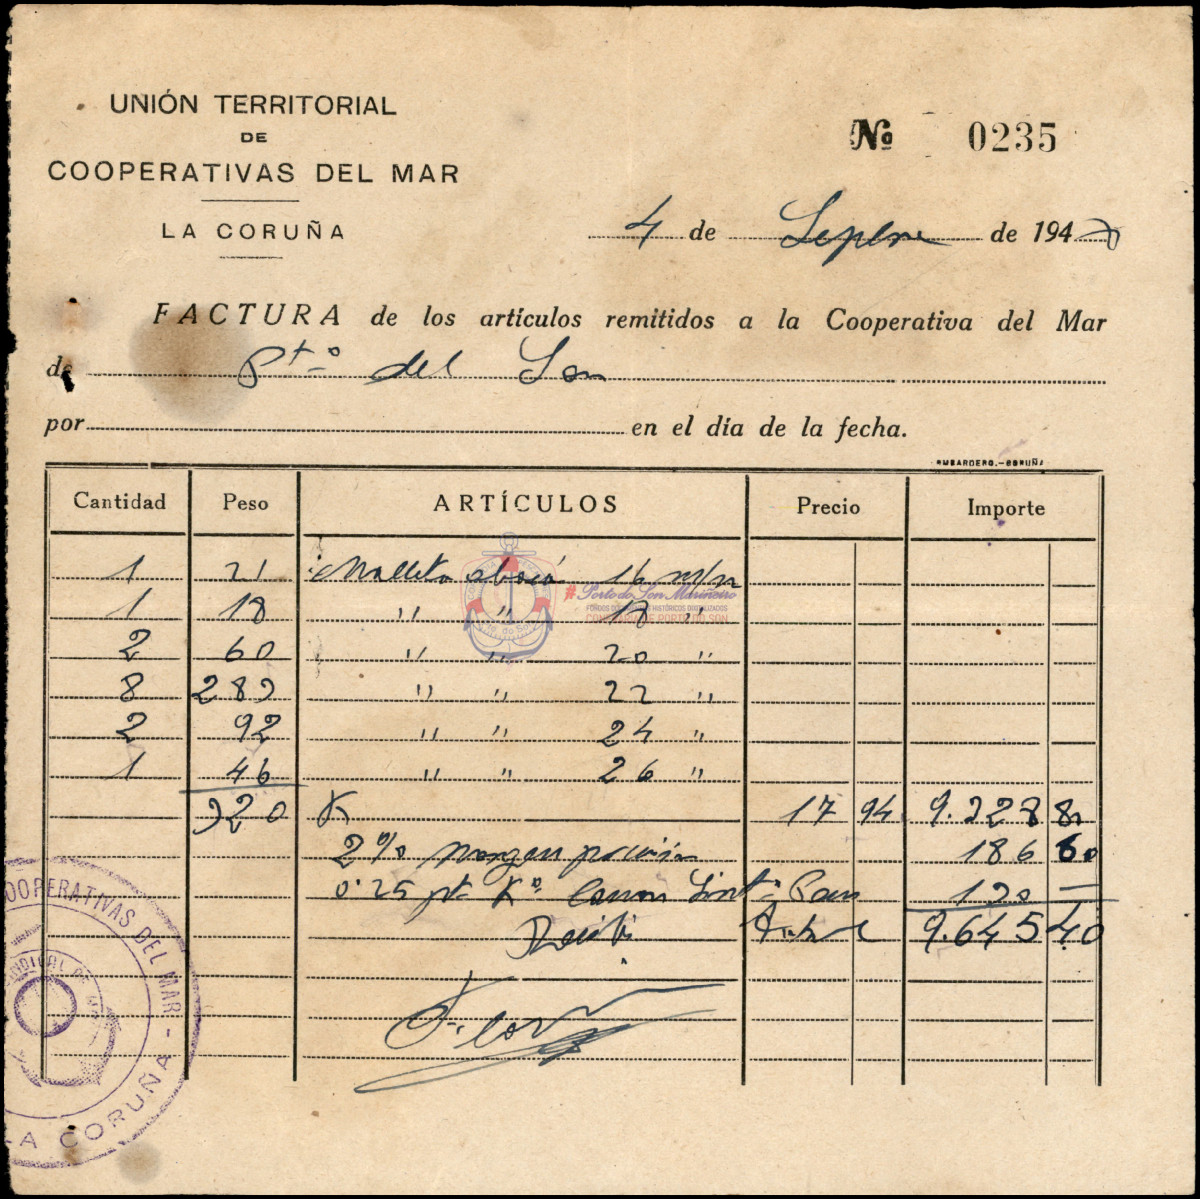 UNIÓN TERRITORIAL
DE
COOPERATIVAS DEL MAR
LA CORUÑA
Nº 0235
4 de Sepbre de 194
FACTURA de los artículos remitidos a la Cooperativa del Mar
de Ptº del Son
por en el día de la fecha.
OMBARDERO.-CORUÑA
Cantidad Peso ARTÍCULOS Precio Importe
1 21 Malleta abacá 16 m/m
1 18 " " 18 "
2 60 " " 20 "
8 283 " " 22 "
2 92 " " 24 "
1 46 " " 26 "
520 K 17 94 9.328 80
2% margen 186 60
0'25 pt Kº 130 —
Recibí 9.645 40
# Porto do Son Mariñeiro
FONDOS DOCUMENTAIS HISTÓRICOS DIXITALIZADOS
CONFRARÍA DE PORTO DO SON
COOPERATIVAS DEL MAR - LA CORUÑA
SINDICAL DE